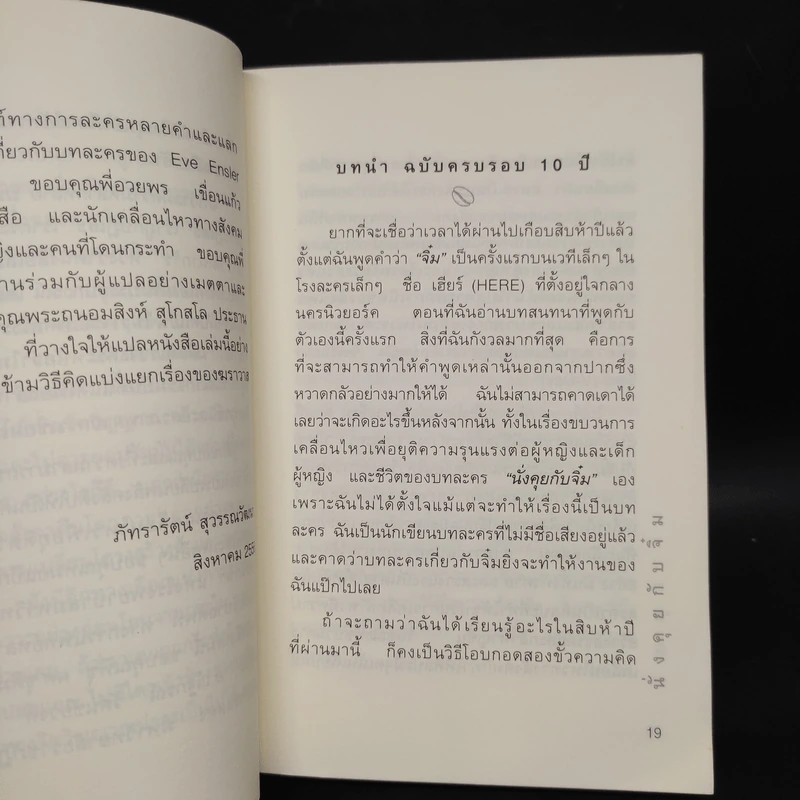 ท์ทางการละครหลายคำและแลก
กี่ยวกับบทละครของ Eve Ensler
ขอบคุณพี่อวยพร เขื่อนแก้ว
สือ และนักเคลื่อนไหวทางสังคม
ญิงและคนที่โดนกระทำ ขอบคุณพี่
านร่วมกับผู้แปลอย่างเมตตาและ
คุณพระถนอมสิงห์ สุโกสโล ประธาน
ที่วางใจให้แปลหนังสือเล่มนี้อย่าง
ข้ามวิธีคิดแบ่งแยกเรื่องของฆราวาส
ภัทรารัตน์ สุวรรณวัฒนา
สิงหาคม 255
บทนำ ฉบับครบรอบ 10 ปี
ยากที่จะเชื่อว่าเวลาได้ผ่านไปเกือบสิบห้าปีแล้ว
ตั้งแต่ฉันพูดคำว่า “จิ๋ม” เป็นครั้งแรกบนเวทีเล็กๆ ใน
โรงละครเล็กๆ ชื่อ เฮียร์ (HERE) ที่ตั้งอยู่ใจกลาง
นครนิวยอร์ค ตอนที่ฉันอ่านบทสนทนาที่พูดกับ
ตัวเองนี้ครั้งแรก สิ่งที่ฉันกังวลมากที่สุด คือการ
ที่จะสามารถทำให้คำพูดเหล่านั้นออกจากปากซึ่ง
หวาดกลัวอย่างมากให้ได้ ฉันไม่สามารถคาดเดาได้
เลยว่าจะเกิดอะไรขึ้นหลังจากนั้น ทั้งในเรื่องขบวนการ
เคลื่อนไหวเพื่อยุติความรุนแรงต่อผู้หญิงและเด็ก
ผู้หญิง และชีวิตของบทละคร “นั่งคุยกับจิ๋ม” เอง
เพราะฉันไม่ได้ตั้งใจแม้แต่จะทำให้เรื่องนี้เป็นบท
ละคร ฉันเป็นนักเขียนบทละครที่ไม่มีชื่อเสียงอยู่แล้ว
และคาดว่าบทละครเกี่ยวกับจิ๋มยิ่งจะทำให้งานของ
ฉันแป๊กไปเลย
ถ้าจะถามว่าฉันได้เรียนรู้อะไรในสิบห้าปี
ที่ผ่านมานี้ ก็คงเป็นวิธีโอบกอดสองขั้วความคิด
นั่งคุยกับจิ๋ม
19